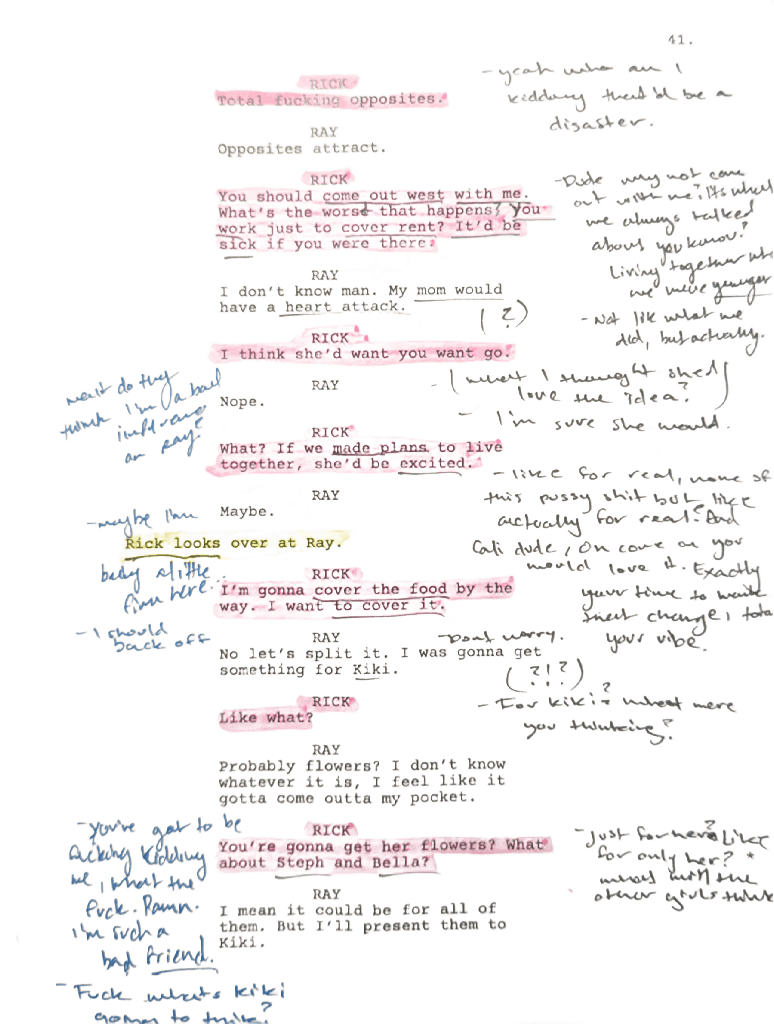 41.
RICK
Total fucking opposites.
- yeah who am I
kidding that'd be a
disaster.
RAY
Opposites attract.
RICK
You should come out west with me.
What's the worst that happens? You
work just to cover rent? It'd be
sick if you were there.
- Dude why not come
out with me? Its what
we always talked
about you know?
Living together
we were younger
- Not like what we
did, but actually.
RAY
I don't know man. My mom would
have a heart attack.
(?)
RICK
I think she'd want you want go.
wait do they
think I'm a bad
influence
on Ray?
RAY
Nope.
- (what I thought shed
love the idea?)
- I'm sure she would.
RICK
What? If we made plans to live
together, she'd be excited.
- like for real, none of
this pussy shit but like
actually for real. And
Cali dude, Oh come on you
would love it. Exactly
your time to make
that change, total
your vibe.
RAY
Maybe.
- maybe I'm
Rick looks over at Ray.
being a little
firm here...
- I should
back off
RICK
I'm gonna cover the food by the
way. I want to cover it.
RAY
- Dont worry.
No let's split it. I was gonna get
something for Kiki.
(?!?)
RICK
Like what?
- For Kiki? What were
you thinking?
RAY
Probably flowers? I don't know
whatever it is, I feel like it
gotta come outta my pocket.
RICK
You're gonna get her flowers? What
about Steph and Bella?
- you've got to be
fucking kidding
me, what the
fuck. Damn.
I'm such a
bad friend.
- Fuck whats Kiki
going to think?
- Just for her? Like
for only her? *
the
other girls think
RAY
I mean it could be for all of
them. But I'll present them to
Kiki.